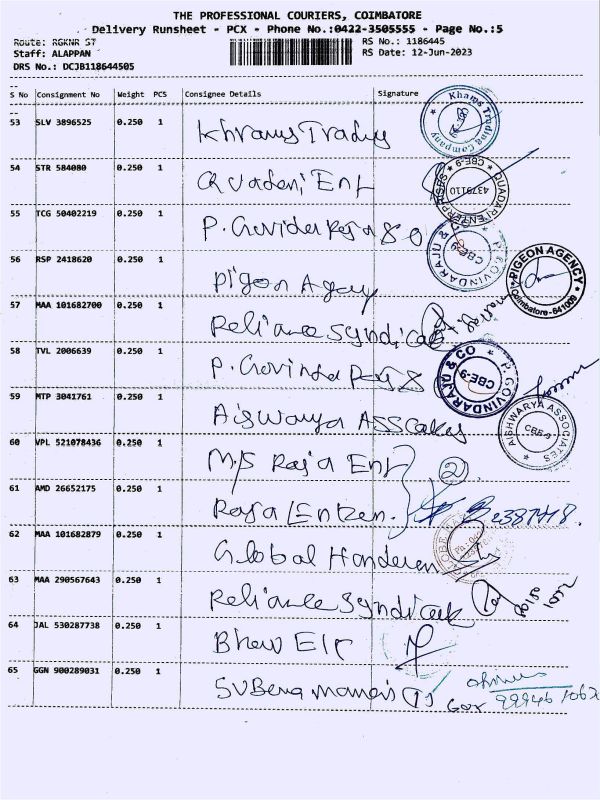 THE PROFESSIONAL COURIERS, COIMBATORE
Delivery Runsheet - PCX - Phone No.:0422-3505555 - Page No.:5
Route: RGKNR ST RS No.: 1186445
Staff: ALAPPAN RS Date: 12-Jun-2023
DRS No.: DCJB118644505
S No Consignment No Weight PCS Consignee Details Signature
53 SLV 3896525 0.250 1 Khrams Trading
Khams Trading Company
54 STR 584080 0.250 1 Quadari Ent
QUADARI ENTERPRISES CBE-9 4379110
55 TCG 50402219 0.250 1 P. Govinda Raja & Co
P.GOVINDARAJU & CO CBE-9
56 RSP 2418620 0.250 1 Pigon Agency
PIGEON AGENCY Coimbatore-641009
57 MAA 101682700 0.250 1 Reliance Syndicate
58 TVL 2006639 0.250 1 P. Govinda Raja &
P. GOVINDARAJU & CO CBE-9
59 MTP 3041761 0.250 1 Aiswarya
AISHWARYA ASSOCIATES CBE-9
60 VPL 521078436 0.250 1 M/S Raja Ent 2
61 AMD 26652175 0.250 1 Raja
62 MAA 101682879 0.250 1 Global
63 MAA 290567643 0.250 1 Reliance Syndicate
64 JAL 530287738 0.250 1 Bhew Elr
65 GGN 900289031 0.250 1